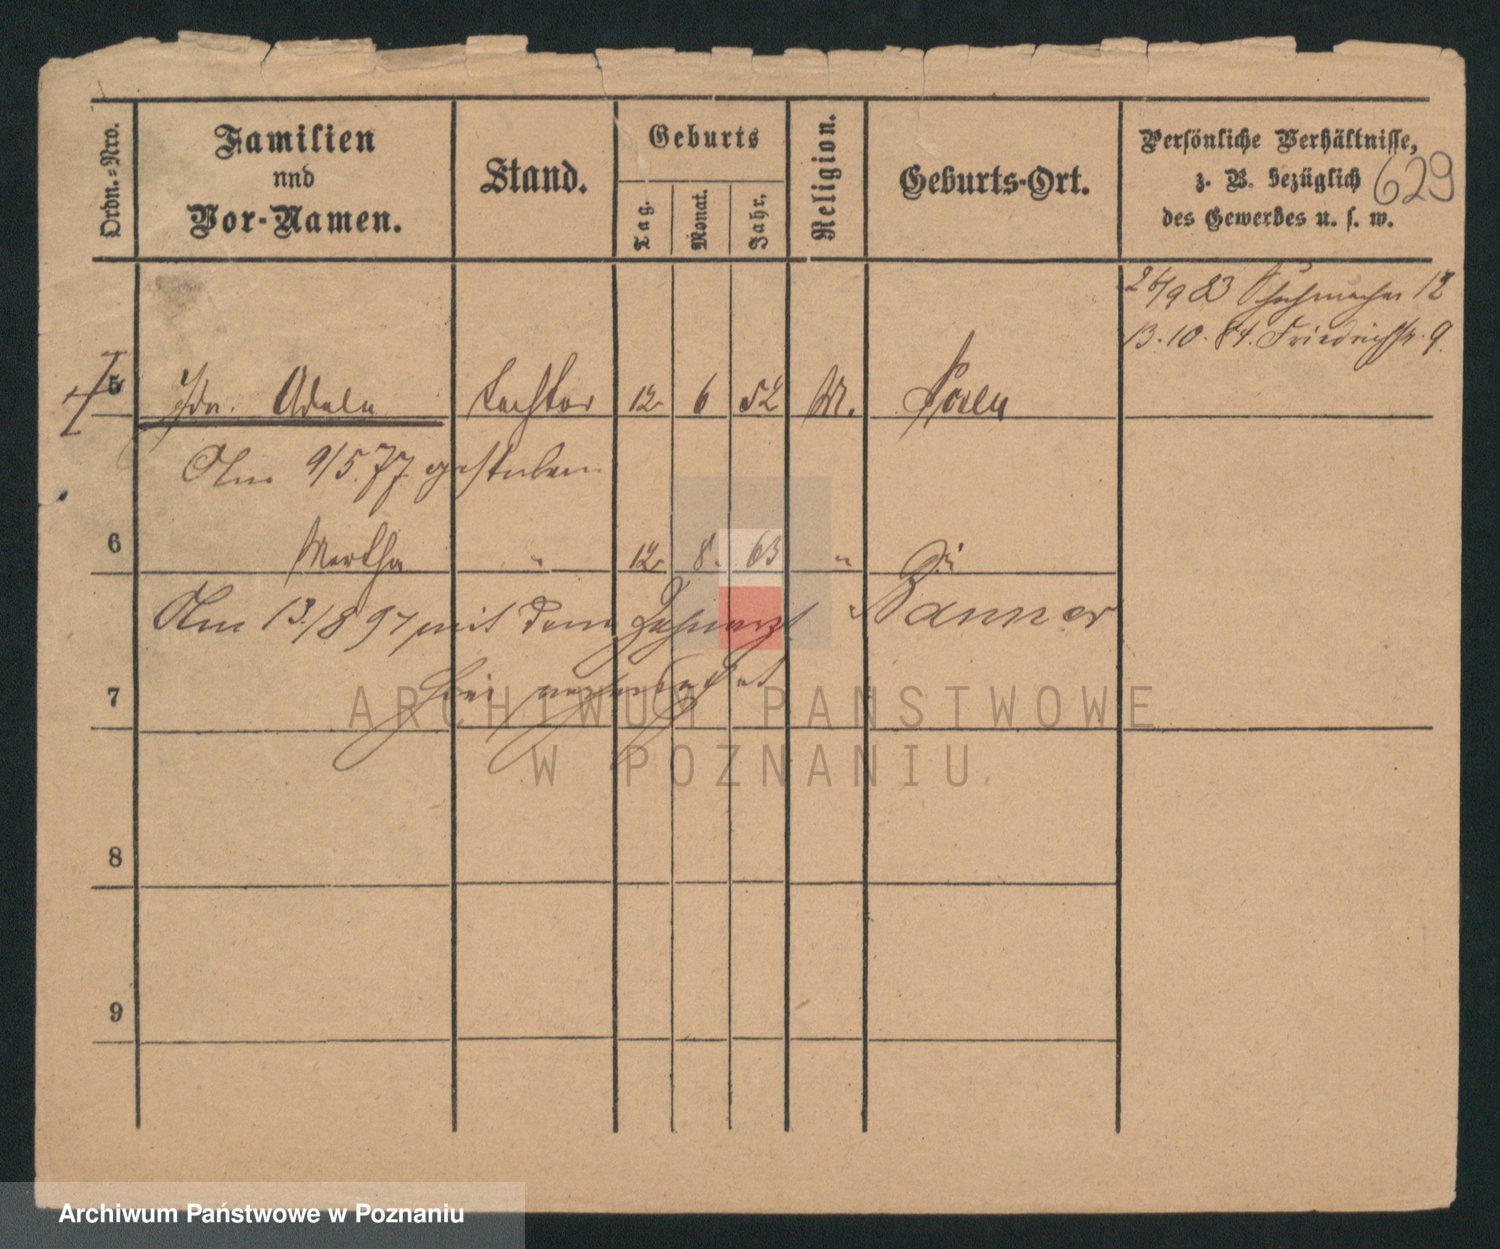 Ordn.=Nro.
Familien
nnd
Vor-Namen.
Stand.
Geburts
Tag.
Monat.
Jahr.
Religion.
Geburts-Ort.
Persönliche Verhältnisse,
z. B. bezüglich
des Gewerbes u. s. w.
629
26/9 83 Schuhmacher 12
13.10.84. Friedrichstr. 9.
5
Adele
Tochter
12
6
52
M.
Posen
Am 9/5.77. gestorben
6
Martha
"
12
8.
63
"
Am 13/8 97 mit dem Zahnarzt Banner
7
hier verheirathet
8
9
ARCHIWUM PAŃSTWOWE
W POZNANIU
Archiwum Państwowe w Poznaniu